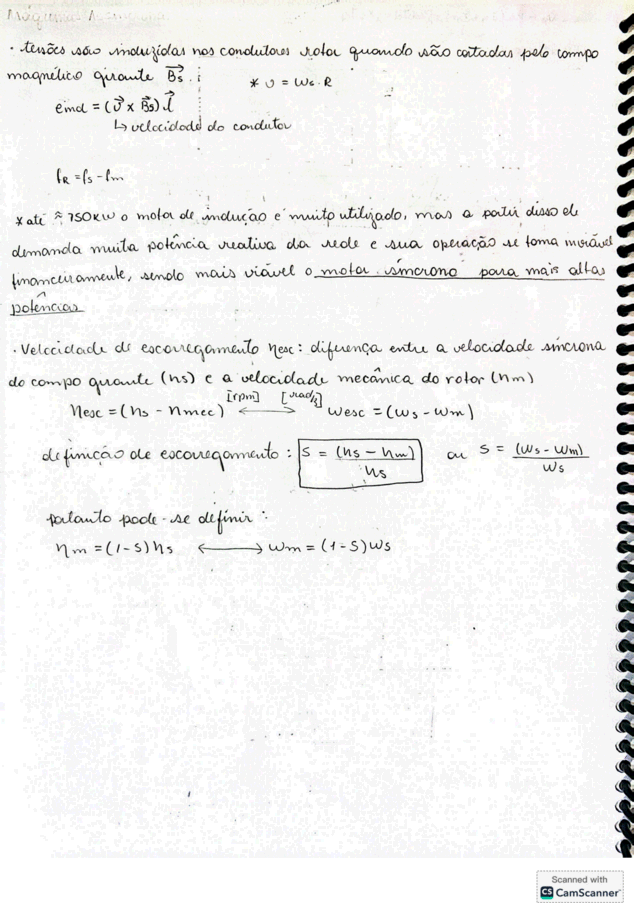 • tensões são induzidas nos condutores rotor quando são cortadas pelo campo
magnético girante B⃗s.
* v = ws.R
eind = (v⃗ x B⃗s) l⃗
↳ velocidade do condutor
fR = fs - fm
* até ≈ 750kW o motor de indução é muito utilizado, mas a partir disso ele
demanda muita potência reativa da rede e sua operação se torna inviável
financeiramente, sendo mais viável o motor síncrono para mais altas
potências
• Velocidade de escorregamento nesc: diferença entre a velocidade síncrona
do campo girante (ns) e a velocidade mecânica do rotor (nm)
nesc = (ns - nmec) [rpm] ⟷ [rad/s] wesc = (ws - wm)
definição de escorregamento: s = (ns - nm)/ns ou s = (ws - wm)/ws
portanto pode-se definir:
nm = (1-s)ns ⟷ wm = (1-s)ws
Scanned with
CS CamScanner